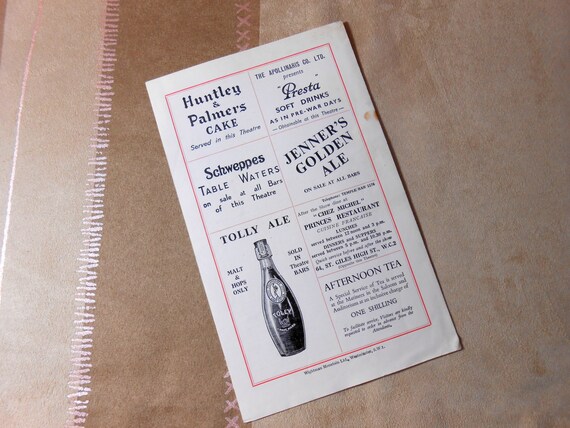 Huntley
&
Palmers
CAKE
Served in this Theatre
THE APOLLINARIS CO. LTD.
presents
"Presta"
SOFT DRINKS
AS IN PRE-WAR DAYS
— Obtainable at this Theatre —
Schweppes
TABLE WATERS
on sale at all Bars
of this Theatre
JENNER'S
GOLDEN
ALE
ON SALE AT ALL BARS
TOLLY ALE
MALT
&
HOPS
ONLY
SOLD
IN
Theatre
BARS
TOLLY
Telephone: TEMPLE BAR
After the Show dine at
"CHEZ MICHEL"
PRINCES RESTAURANT
CUISINE FRANÇAISE
LUNCHES
served between 12 noon and 3 p.m.
DINNERS and SUPPERS
served between 5 p.m. and 10.30 p.m.
Quick service before and after the show
64, ST. GILES HIGH ST., W.C.2
AFTERNOON TEA
A Special Service of Tea is served
at the Matinees in the Saloons and
Auditorium at an inclusive charge of
ONE SHILLING
To facilitate service, Visitors are kindly
requested to order in advance from the
Attendants.
Ltd., Westminster, S.W.1.